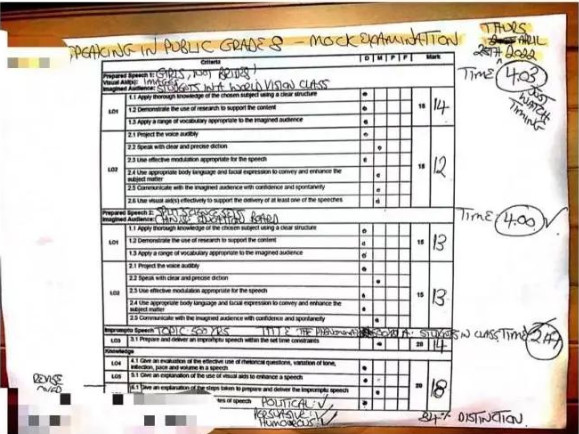 SPEAKING IN PUBLIC GRADE 8 - MOCK EXAMINATION
THURS
APRIL
2022
Criteria D M P F Mark
Prepared Speech 1: GIRLS, NOT BRIDES!
Visual Aid(s): IMAGES
Imagined Audience: STUDENTS IN A WORLD VISION CLASS
TIME 4.03
JUST WATCH TIMING
LO1 1.1 Apply thorough knowledge of the chosen subject using a clear structure
1.2 Demonstrate the use of research to support the content 15 14
1.3 Apply a range of vocabulary appropriate to the imagined audience
LO2 2.1 Project the voice audibly
2.2 Speak with clear and precise diction
2.3 Use effective modulation appropriate for the speech
2.4 Use appropriate body language and facial expression to convey and enhance the subject matter 15 12
2.5 Communicate with the imagined audience with confidence and spontaneity
2.6 Use visual aid(s) effectively to support the delivery of at least one of the speeches
Prepared Speech 2:
Imagined Audience: BOARD
TIME: 4.00 ✓
LO1 1.1 Apply thorough knowledge of the chosen subject using a clear structure
1.2 Demonstrate the use of research to support the content 15 13
1.3 Apply a range of vocabulary appropriate to the imagined audience
LO2 2.1 Project the voice audibly
2.2 Speak with clear and precise diction
2.3 Use effective modulation appropriate for the speech 15 13
2.4 Use appropriate body language and facial expression to convey and enhance the subject matter
2.5 Communicate with the imagined audience with confidence and spontaneity
Impromptu Speech TOPIC: 500 YRS TITLE THE A: STUDENTS IN CLASS TIME
LO3 3.1 Prepare and deliver an impromptu speech within the set time constraints 20 14
Knowledge
LO4 4.1 Give an evaluation of the effective use of rhetorical questions, variation of tone, inflection, pace and volume in a speech
LO5 5.1 Give an explanation of the use of visual aids to enhance a speech 20 18
6.1 Give an explanation of the steps taken to prepare and deliver the impromptu speech
REVISE
types of speech POLITICAL ✓
PERSUASIVE ✓
HUMOROUS ✓
84% DISTINCTION